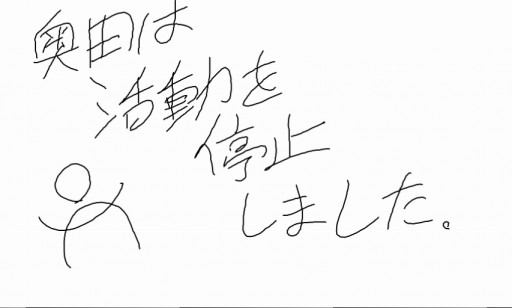 奥田は
活動を
停止
しました。